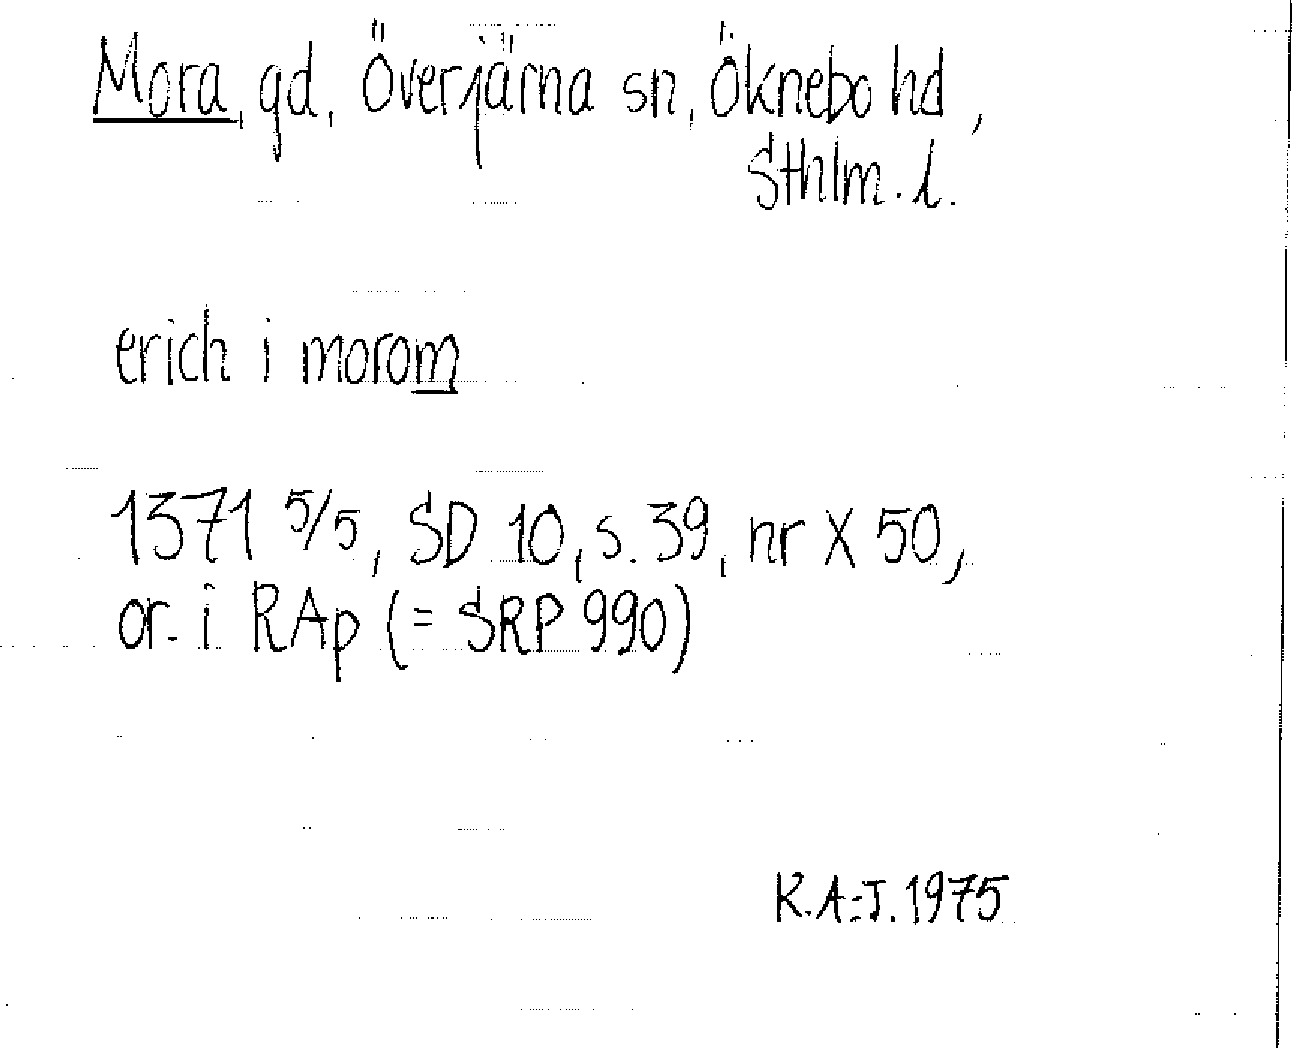 Mora, gd, Överjärna sn, Öknebo hd,
Sthlm. l.
erich i morom
1371 5/5, SD 10, s. 39, nr X 50,
or. i RAp (= SRP 990)
K.A=J. 1975